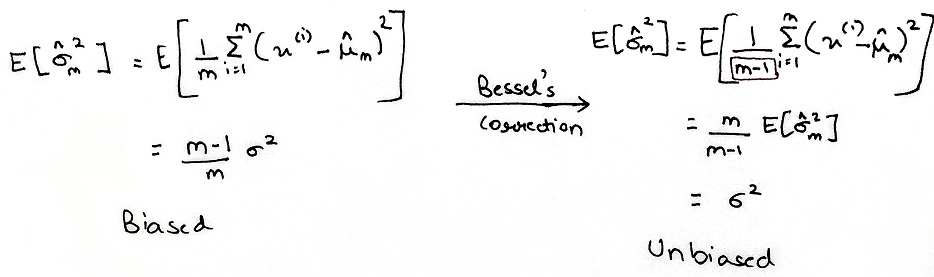 E[σ̂²ₘ] = E[1/m Σᵢ₌₁ᵐ (x⁽ⁱ⁾ - μ̂ₘ)²]
= m-1/m σ²
Biased
Bessel's
correction
E[σ̂²ₘ] = E[1/m-1 Σᵢ₌₁ᵐ (x⁽ⁱ⁾ - μ̂ₘ)²]
= m/m-1 E[σ̂²ₘ]
= σ²
Unbiased